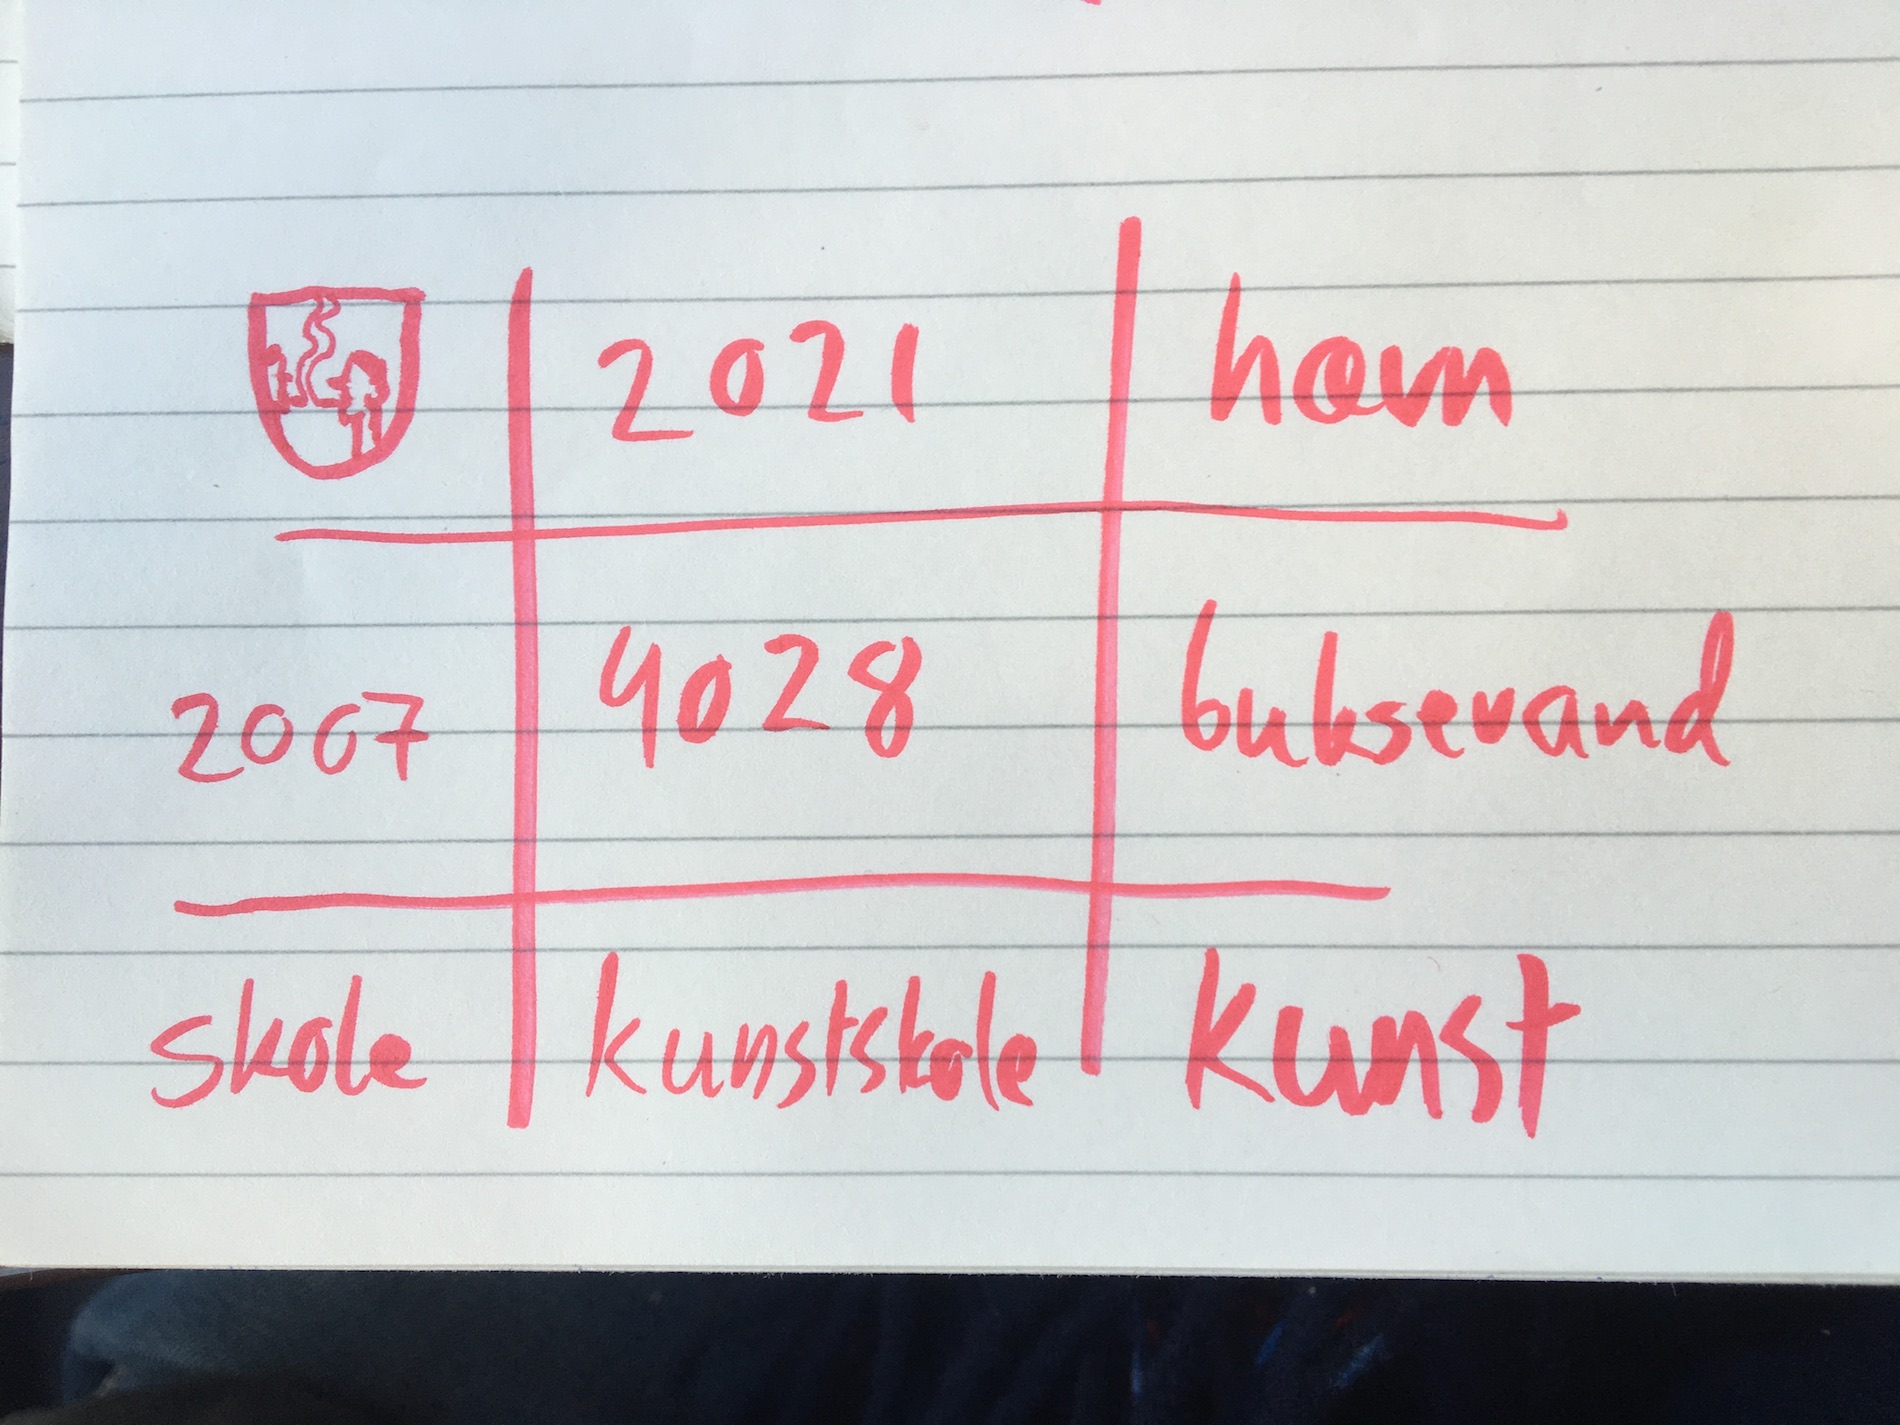 2021
2007 4028 buksevand
skole kunstskole kunst